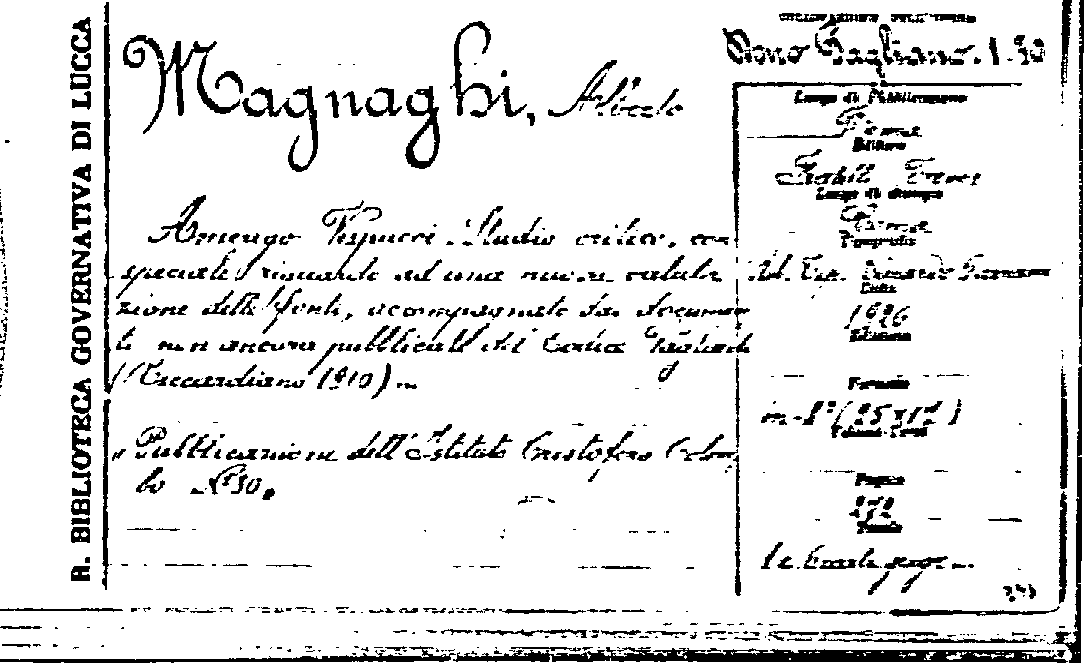 R. BIBLIOTECA GOVERNATIVA DI LUCCA
Magnaghi, Alberto
Amerigo Vespucci. Studio critico, con
speciale riguardo ad una nuova valuta
zione delle fonti, accompagnato dai documen
ti non ancora pubblicati del Codice Vaglienti
(Riccardiano 1910)
"Pubblicazioni dell'Istituto Cristoforo Colom
bo N°30.
COLLOCAZIONE DELL'OPERA
Dono Gagliano. 1.50
Luogo di Pubblicazione
Roma
Editore
Fratelli Treves
Luogo di stampa
Roma
Tipografia
Tip.
Data
1926
Edizione
Formato
in-8° (25x17)
Pagine
272
Tavole